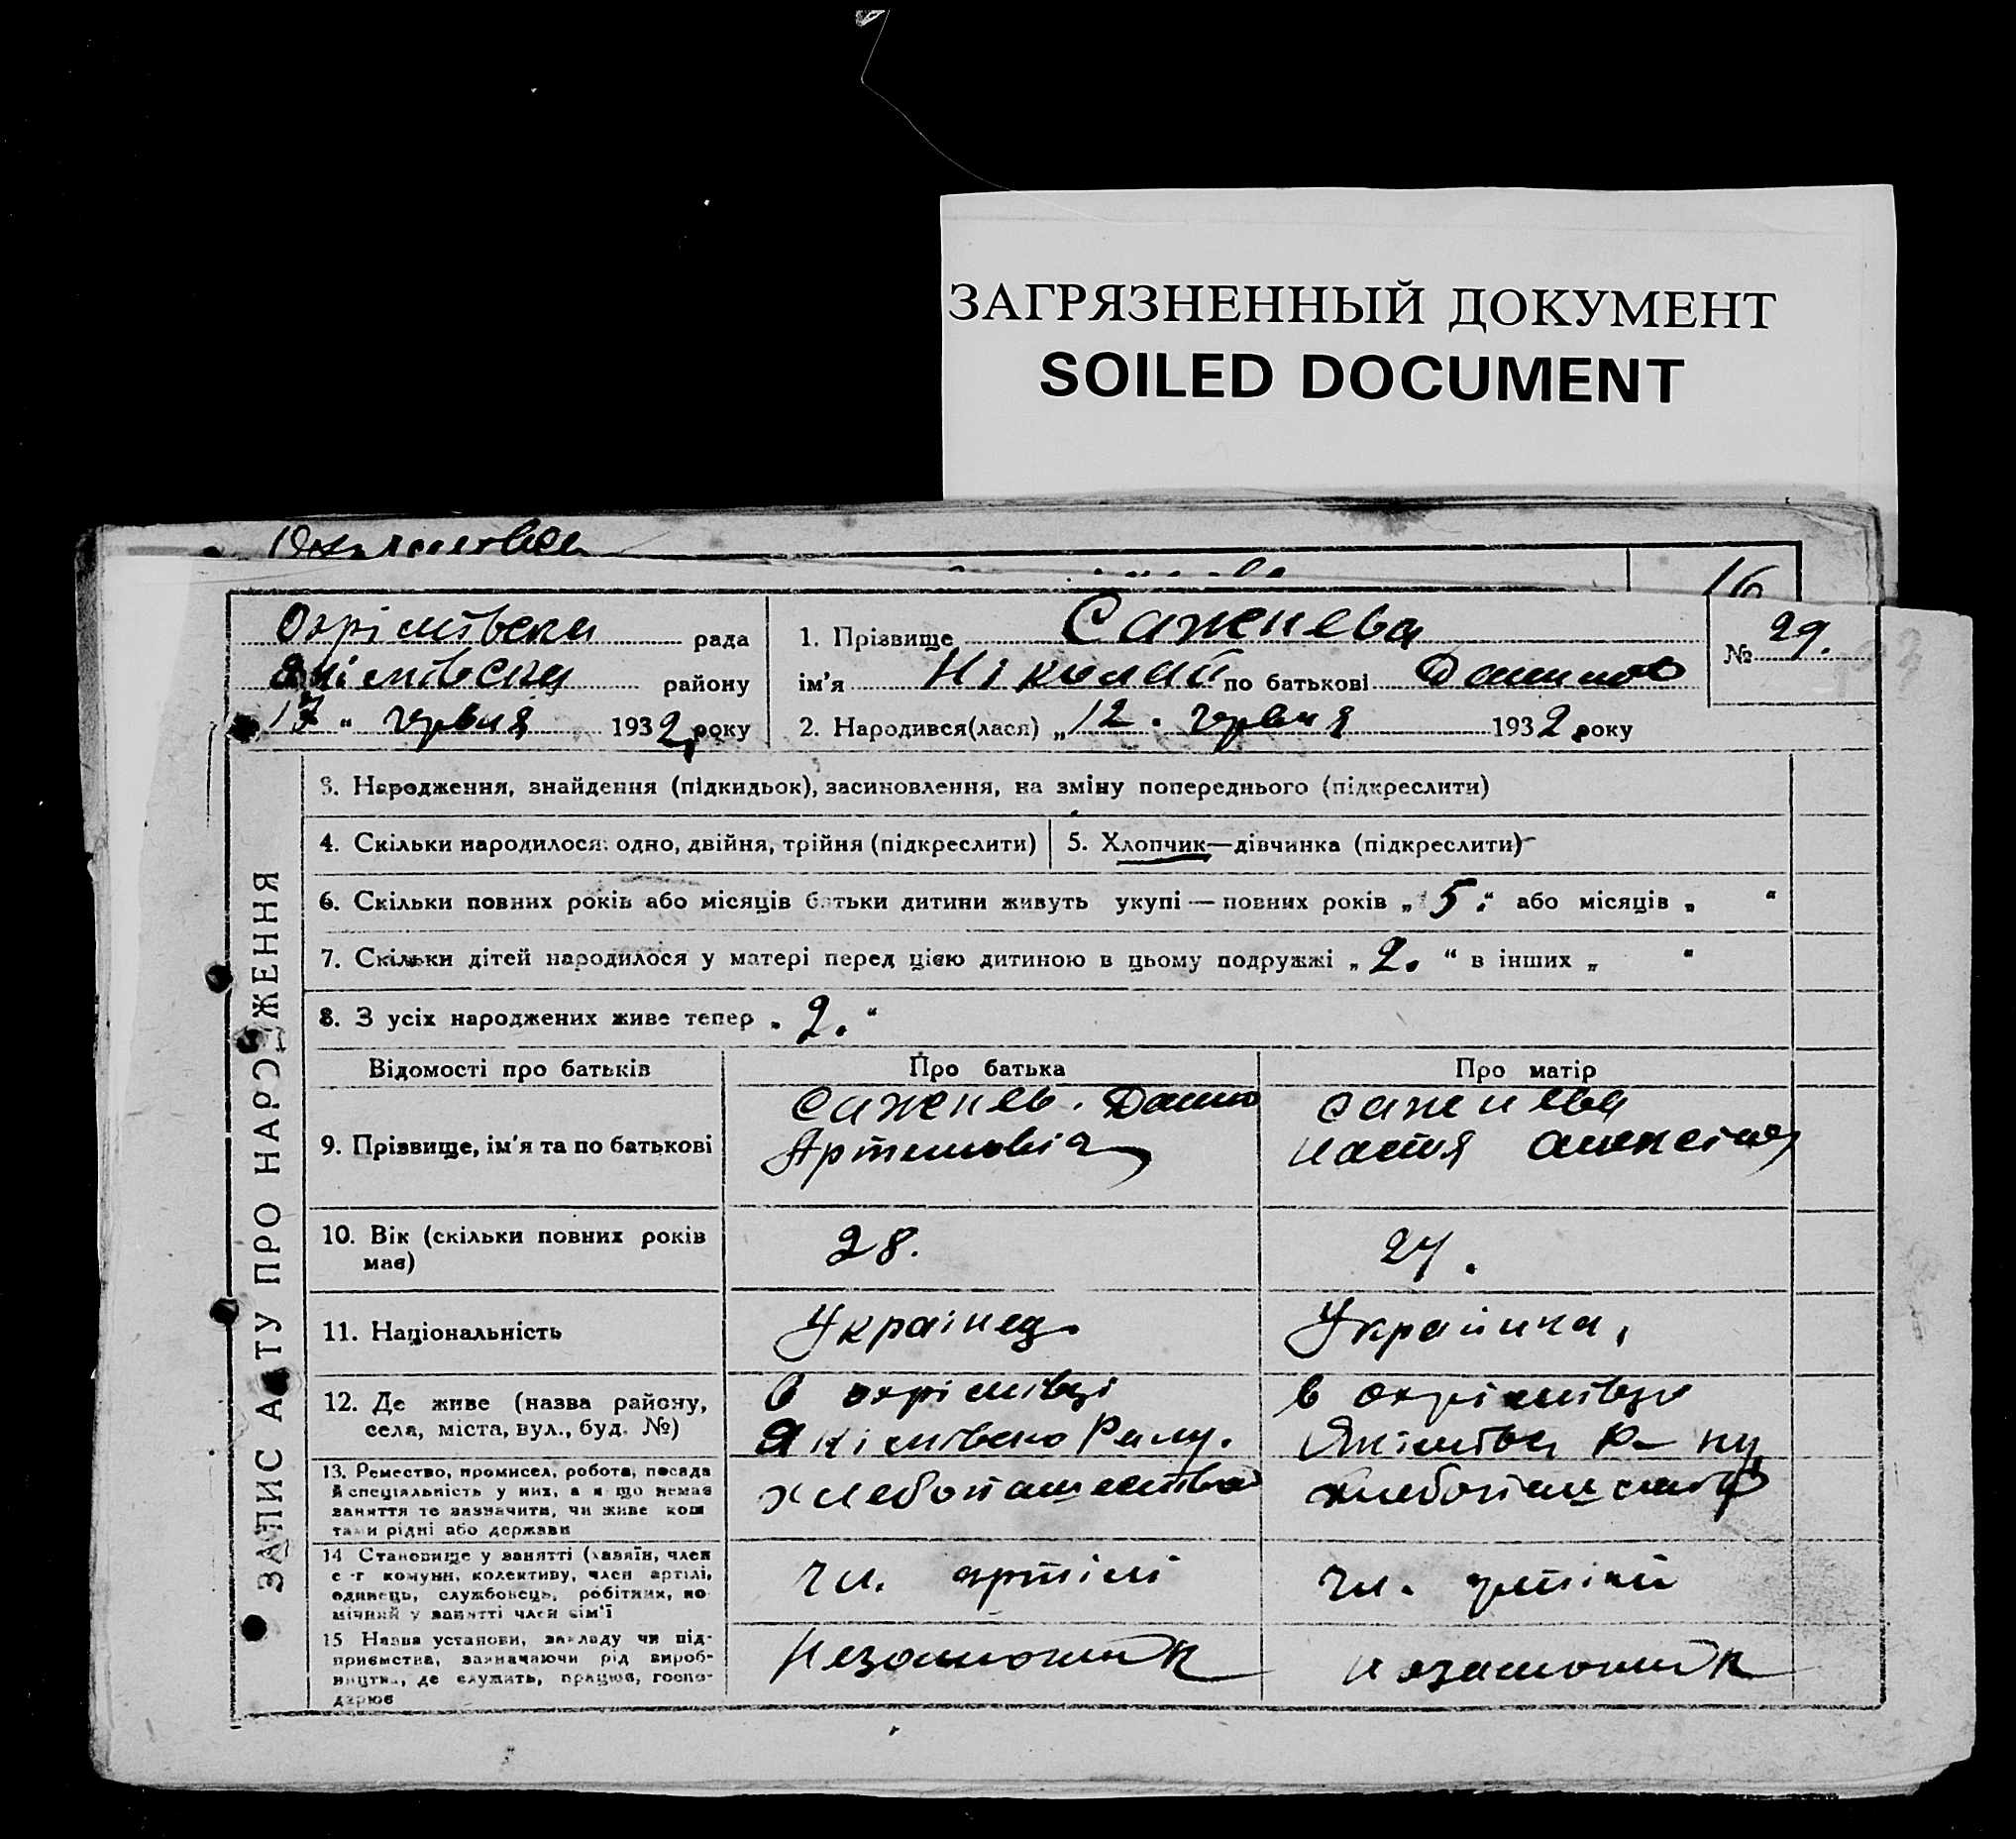 ЗАГРЯЗНЕННЫЙ ДОКУМЕНТ
SOILED DOCUMENT
16
Охрімівска рада
Якімівску району
17 " червня 1932 року
1. Прізвище Саженева
ім'я Ніколай по батькові
2. Народився(лася) „12. червня 1932 року
№ 29.
ЗАПИС АКТУ ПРО НАРОДЖЕННЯ
3. Народження, знайдення (підкидьок), засиновлення, на зміну попереднього (підкреслити)
4. Скільки народилося: одно, двійня, трійня (підкреслити)
5. Хлопчик—дівчинка (підкреслити)
6. Скільки повних років або місяців батьки дитини живуть укупі — повних років „ 5." або місяців „ "
7. Скільки дітей народилося у матері перед цією дитиною в цьому подружжі „ 2. " в інших „ "
8. З усіх народжених живе тепер „ 2. "
Відомості про батьків
Про батька
Про матір
9. Прізвище, ім'я та по батькові
Саженев.
Артемовіч
Саженева
Настя
10. Вік (скільки повних років
має)
28.
24.
11. Національність
Українец.
Украйинка,
12. Де живе (назва району,
села, міста, вул., буд. №)
в охрімівці
Якімівско
в охрімівці
Якімівск Р-ну
13. Ремество, промисел, робота, посада
й спеціяльність у них, а якщо немає
заняття то зазначити, чи живе кош
тами рідні або держави
хлебопашества
хлебопашества
14 Становище у занятті (хазяїн, член
с.-г комуни, колективу, член артілі,
одинець, службовець, робітник, по
мічний у занятті член сім'ї
чл. артілі
чл. артілі
15 Назва установи, закладу чи під-
приємства, зазначаючи рід вироб-
ництва, де служить, працює, госпо-
дарює
Незаможник
незаможник